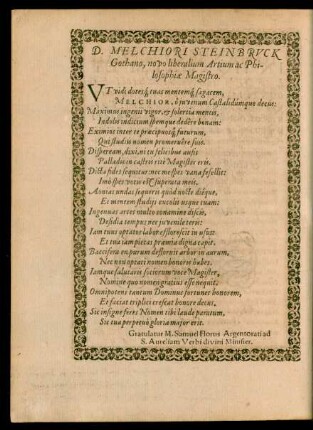 D. MELCHIORI STEINBRVCK
Gothano, novo liberalium Artium ac Phi-
losophiæ Magistro.
VT vidi dotesq́; tuas mentemq́; sagacem,
MELCHIOR, ô juvenum Castalidumque decus:
Maximus ingenii vigor, & solertia mentis,
Indolis indicium spemque dedêre bonam:
Eximius inter te præcipuosq́; futurum,
Qui studiis nomen promeruêre suis.
Dispeream, dixi, ni tu felicibus ausis
Palladiis in castris ritè Magister eris.
Dicta fides sequitur: nec me spes vana fefellit:
Imò spes voti est superata mei.
Aonias undas sequeris quòd nocte diéque,
Et mentem studiis excolis usque tuam:
Ingenuas artes multo conamine discis,
Desidia tempus nec juvenile teris:
Iam tuus optatos labor efflorescit in usus:
Et tua jam pietas præmia digna capit.
Baccifera ex purum deflorens arbor in aurum,
Nec non optati nomen honoris habes.
Iamque salutaris sociorum voce Magister,
Nomine quo nomen gratius esse nequit.
Omnipotens tantum Dominus fortunet honorem,
Et faciat triplici crescat honore decus.
Sic insigne feres Nomen tibi laude paratum,
Sic tua perpetuò gloria major erit.
Gratulatur M. Samuel Florus Argentorati ad
S. Aureliam Verbi divini Minister.